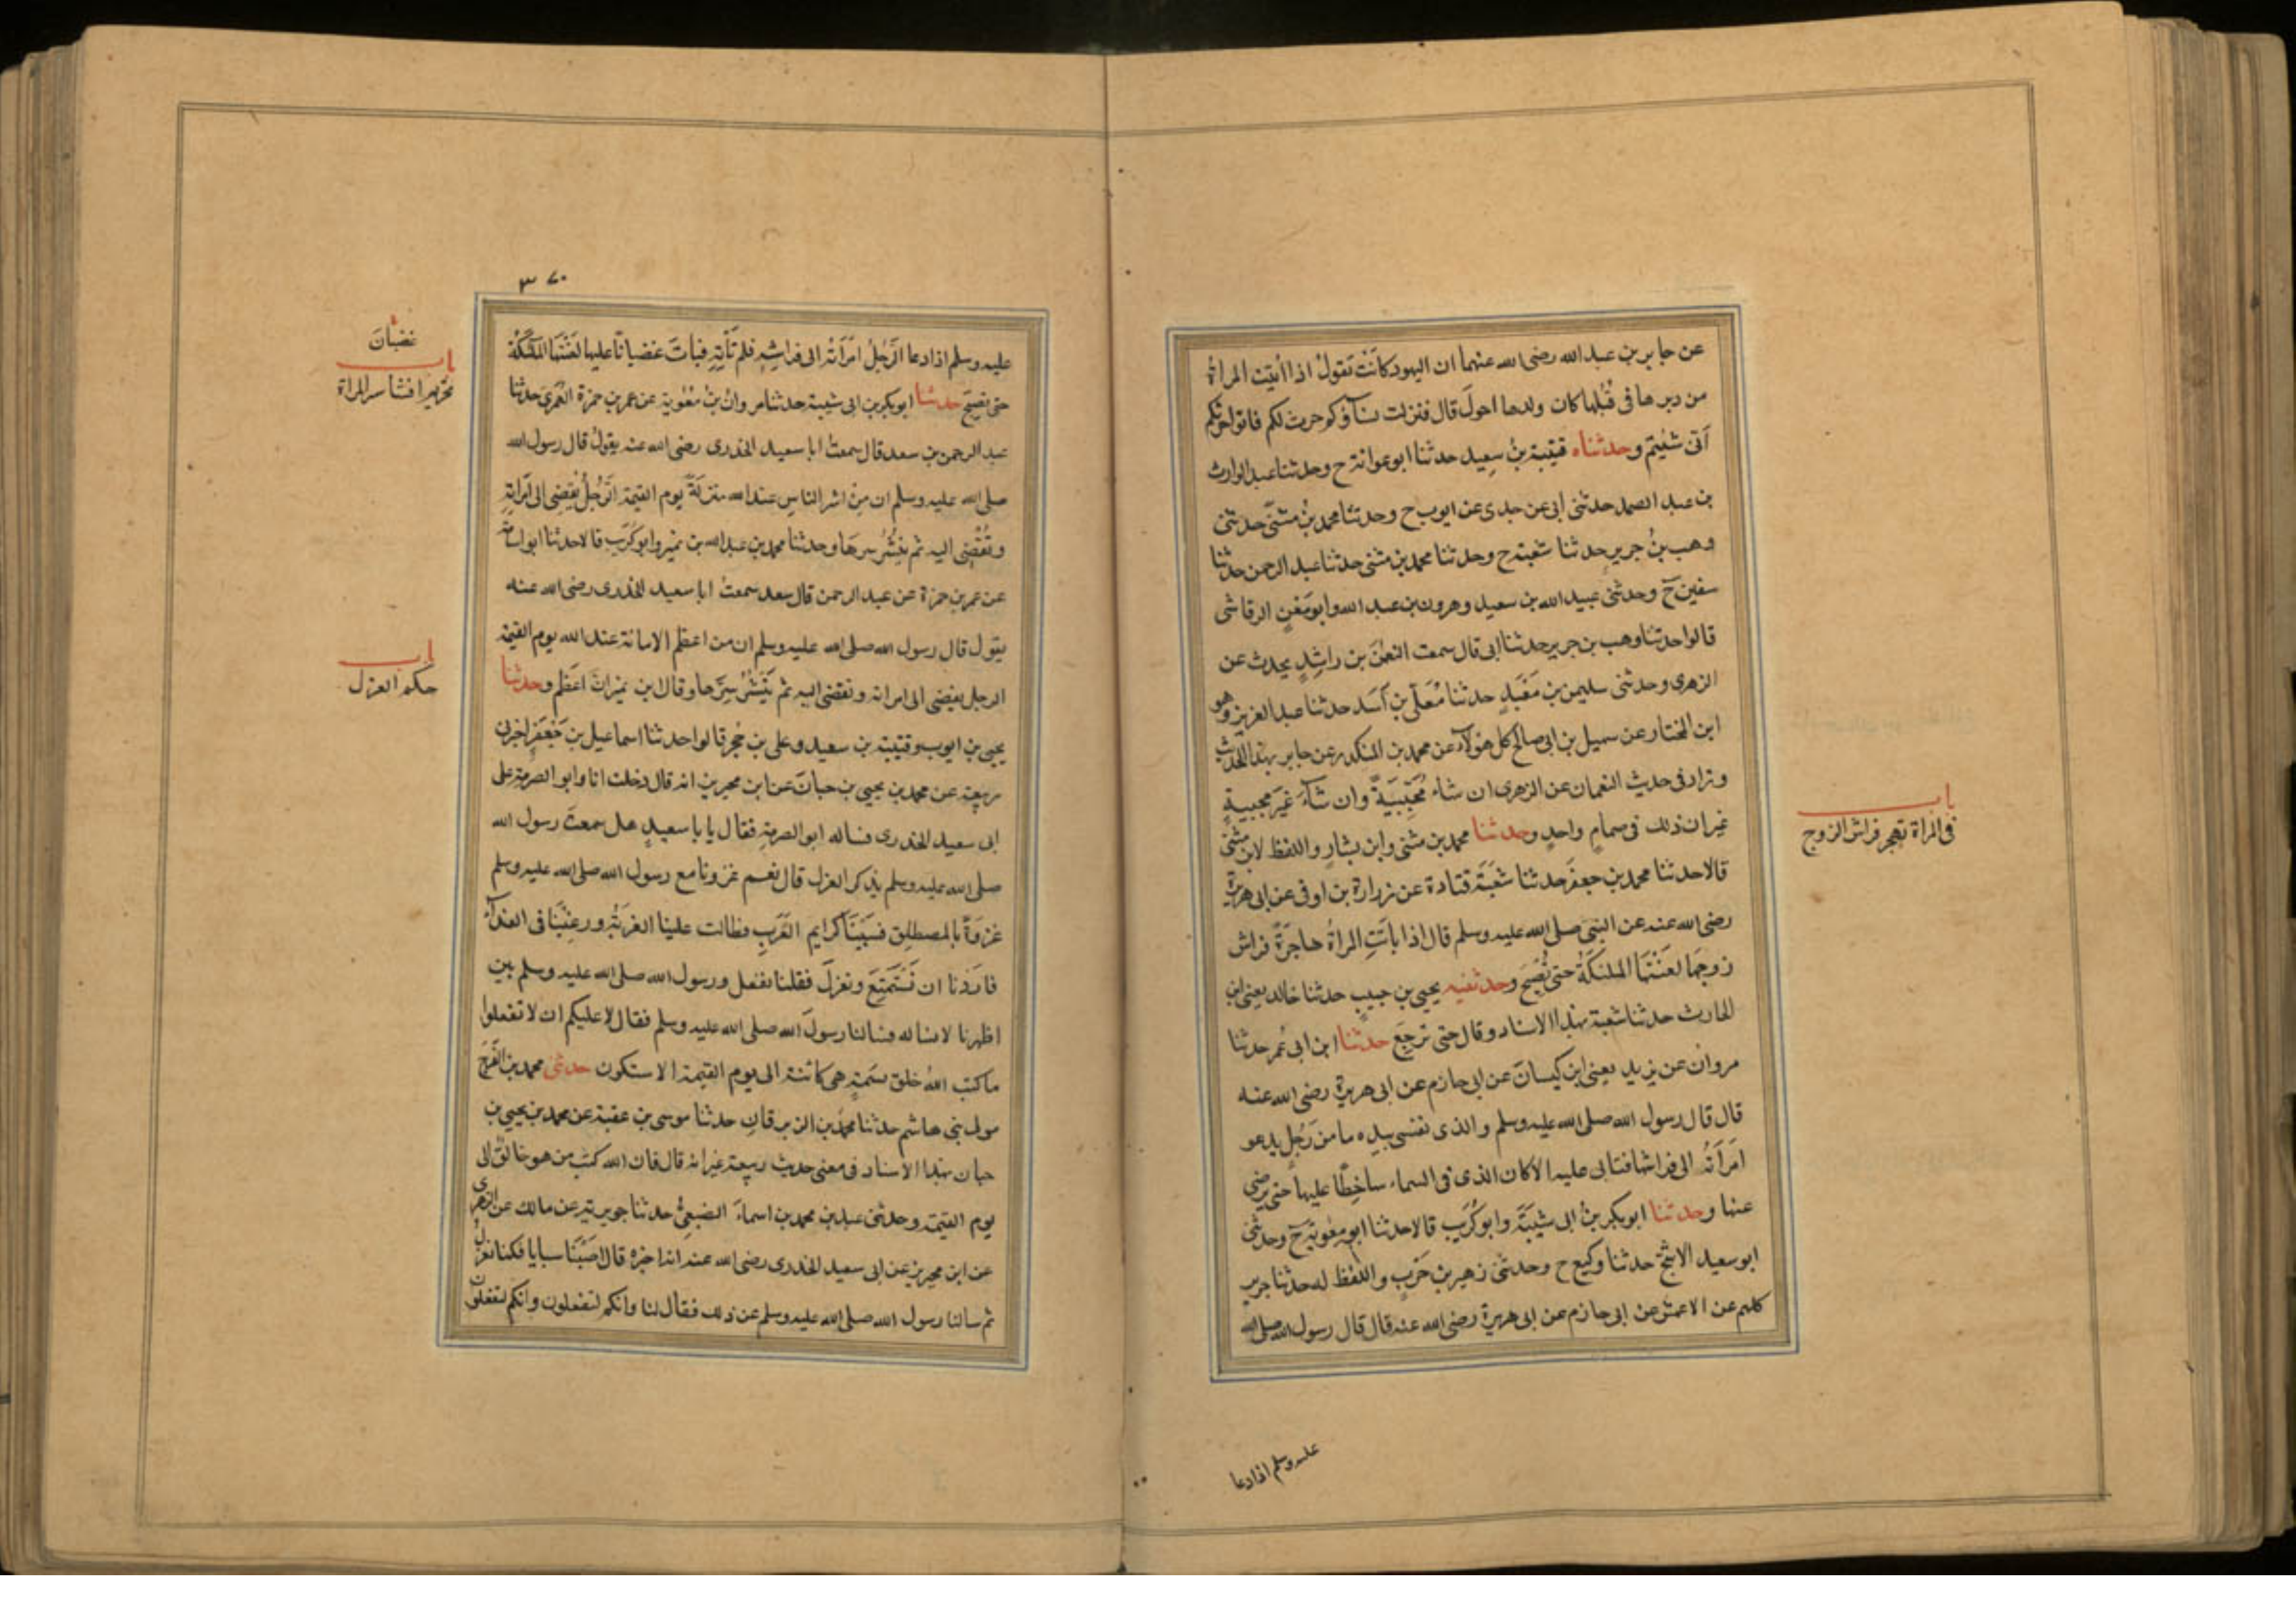 عن جابر بن عبد الله رضى الله عنهما ان اليهود كانَتْ تَقولُ اذا أُتيت المراةُ
من دبرها فى قُبُلها كان ولدها احولَ قال فنزلت نسآؤكم حرث لكم فاتوا حرثكم
اَنّى شئيتم وحدثناه قتيبة بنُ سعِيد حدثنا ابو عوانة ح وحدثنا عبد الوارث
بن عبد الصمد حدثنى ابى عن جدى عن ايوب ح وحدثنا محمد بنُ مثنّى حدثنى
وهب بنُ جرير حدثنا شعبة ح وحدثنا محمد بن مثنى حدثنا عبد الرحمن حدثنا
سفين ح وحدثنى عبيد الله بن سعيد وهرون بن عبد الله وابو مَعْنٍ الرقاشى
قالوا حدثنا وهب بن جرير حدثنا ابى قال سمعت النعمٰنَ بن راشِدٍ يحدث عن
الزهرى وحدثنى سليمن بن مَعْبَدٍ حدثنا مُعَلّى بن اَسَد حدثنا عبد العزيز وهو
ابن المختار عن سهيل بن ابى صالح كل هؤلآء عن محمد بن المنكدر عن جابر بهذا الحديث
وزاد فى حديث النعمان عن الزهرى ان شاء مُجَبِّيَةً وان شآءَ غيرَ مجبيةٍ
غير ان ذلك فى صمامٍ واحدٍ وحدثنا محمد بن مثنى وابن بشارٍ واللفظ لابن مثنى
قالا حدثنا محمد بن جعفر حدثنا شعبَة قتادة عن زرارة بن اوفى عن ابى هريرة
رضى الله عنه عن النبى صلى الله عليه وسلم قال اذا باتَتِ المراةُ هاجرةً فراش
زوجهَا لعنَتْهَا الملئكةُ حتى تُصْبِحَ وحدثنيه يحيى بن حبيبٍ حدثنا خالد يعنى ابن
الحارث حدثنا شعبة بهذا الاسناد وقال حتى ترجِعَ حدثنا ابن ابى عُمر حدثنا
مروان عن يزيد يعنى ابن كيسانَ عن ابى حازم عن ابى هريرة رضى الله عنه
قال قال رسول الله صلى الله عليه وسلم والذى نفسى بيدِه ما من رَجُلٍ يدعو
امَرَاَتَهُ الى فراشها فتابى عليه الا كان الذى فى السماء ساخِطًا عليها حتى يرضى
عنها وحدثنا ابو بكر بنُ ابى شَيْبَةَ وابو كُرَيب قالا حدثنا ابو معوية ح وحدثنى
ابو سعيد الاشجّ حدثنا وكيع ح وحدثنى زهير بن حَرْبٍ واللفظ له حدثنا جرير
كلهم عن الاعمش عن ابى حازم عن ابى هريرة رضى الله عنه قال قال رسول الله صلى الله
عليه وسلم اذا دعا
باب
فى المراة تهجر فراش الزوج
٣٧٠
عليه وسلم اذا دعا الرَّجُلُ امَرَاَتَهُ الى فراشِهِ فلم تَأتِهِ فباتَ غضبانا عليها لعَنَتْهَا الملئكةُ
حتى تصبحَ حدثنا ابو بكر بن ابى شيبة حدثنا مروانُ بنُ مُعٰوية عن عمر بن حمزة العُمَرى حدثنا
عبد الرحمن بن سعد قال سمعت ابا سعيد الخدرى رضى الله عنه يقولُ قال رسول الله
صلى الله عليه وسلم ان مِنْ اشر الناسِ عند الله منزلةً يوم القيمة الرَّجُلُ يُفضِى الى امرَاَتِهِ
وتُفْضِى اليه ثم ينشُرُ سِرهَا وحدثنا محمد بن عبد الله بن نمير وابو كُرَيب قالا حدثنا ابو اسامة
عن عمر بن حمزة عن عبد الرحمن قال سعد سمعت ابا سعيد الخدرى رضى الله عنه
يقول قال رسول الله صلى الله عليه وسلم ان من اعظم الامانة عند الله يوم القيمة
الرجل يفضى الى امراته وتفضى اليه ثم يَنْشُرُ سِرَّها وقال ابن نميرانّ اعَظَم وحدثنا
يحيى بن ايوب وقتيبة بن سعيد وعلى بن حُجر قالوا حدثنا اسماعيل بن جَعْفَرٍ اخبرنى
ربيعة عن محمد بن يحيى بن حبانَ عن ابن محيريز انه قال دخلت انا وابو الصرمة على
ابى سعيد الخدرى فساله ابو الصرمة فقال يا با سعيدٍ هل سمعتَ رسول الله
صلى الله عليه وسلم يذكر العزل قال نعم غزونا مع رسول الله صلى الله عليه وسلم
غزوَةً بالمصطلِق فسَبَيْنَا كرايم العَرَبِ فطالت علينا العزبَةُ ورغِبْنَا فى الفدآءِ
فارَدْنا ان نَسْتَمتِعَ ونعزلَ فقلنا نفعل ورسول الله صلى الله عليه وسلم بين
اظهرنا لا نساله فسالنا رسولَ الله صلى الله عليه وسلم فقال لا عليكم ان لا تفعلوا
ما كتب اللهُ خلق نسَمَةٍ هى كائنة الى يوم القيمة الا ستكون حدثنى محمد بن الفَرَج
مولى بنى هاشم حدثنا محمدُ بن الزبرقان حدثنا موسى بن عقبة عن محمد بن يحيى بن
حبان بهذا الاسناد فى معنى حديث ربيعة غير انه قال فان الله كتبَ من هو خالقٌ الى
يوم القيمة وحدثنى عبد بن محمد بن اسماءَ الضبعىُّ حدثنا جويرية عن مالك عن الزهرى
عن ابن محيريز عن ابى سعيد الخدرى رضى الله عنه انه اخبره قال اصَبْنَا سبايا فكنا نعزلُ
ثم سالنا رسول الله صلى الله عليه وسلم عن ذلك فقال لنا وانكم لتفعلون وانكم لتفعلون
غضبانَ
باب
تحريم افشا سر المراة
باب
حكم العزل